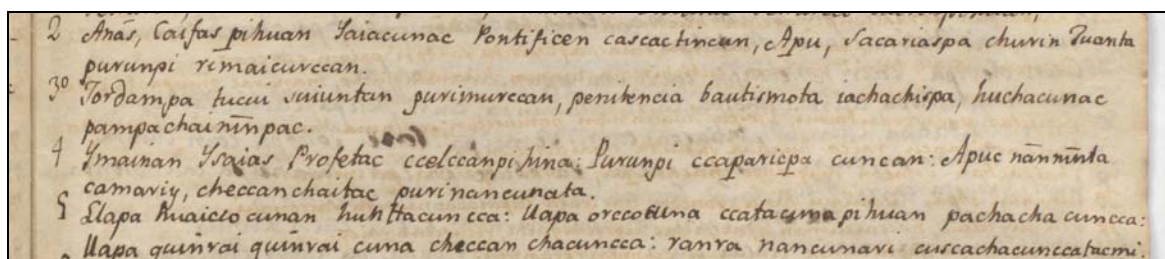 2 Anas, Caifas pihuan Saiacunac Pontificen cascactincun, Apu, Sacariaspa churin Juanta
purunpi rimaicurccan.
3º Jordampa tucui suiuntan purimurccan, penitencia bautismota iachachispa, huchacunac
pampachaininpac.
4 Ymainan Ysaias Profetac ccelccanpi hina: Purunpi ccaparicpa cuncan: Apuc ñanninta
camariy, checcanchaitac purinancunata.
5 Llapa huaicco cunan hunttacuncca: llapa orcco cuna ccatacunapihuan pachacha cuncca:
llapa quinrai quinrai cuna checcan chacuncca: ranra ñancunari cuscachacunccatacmi.